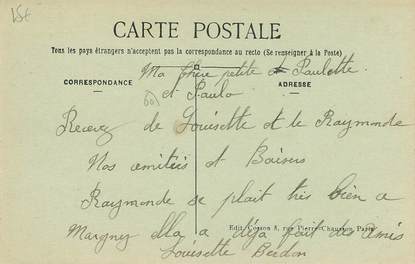 15t
CARTE POSTALE
Tous les pays étrangers n'acceptent pas la correspondance au recto (Se renseigner à la Poste)
CORRESPONDANCE
ADRESSE
Ma chère petite Paulette
et Paulo
Recevez de Louisette et de Raymonde
Nos amitiés et Baisers
Raymonde se plait très bien a
Edit. Cosson 8, rue Pierre-Chausson, Paris
Margney ella a déja fait des amis
Louisette